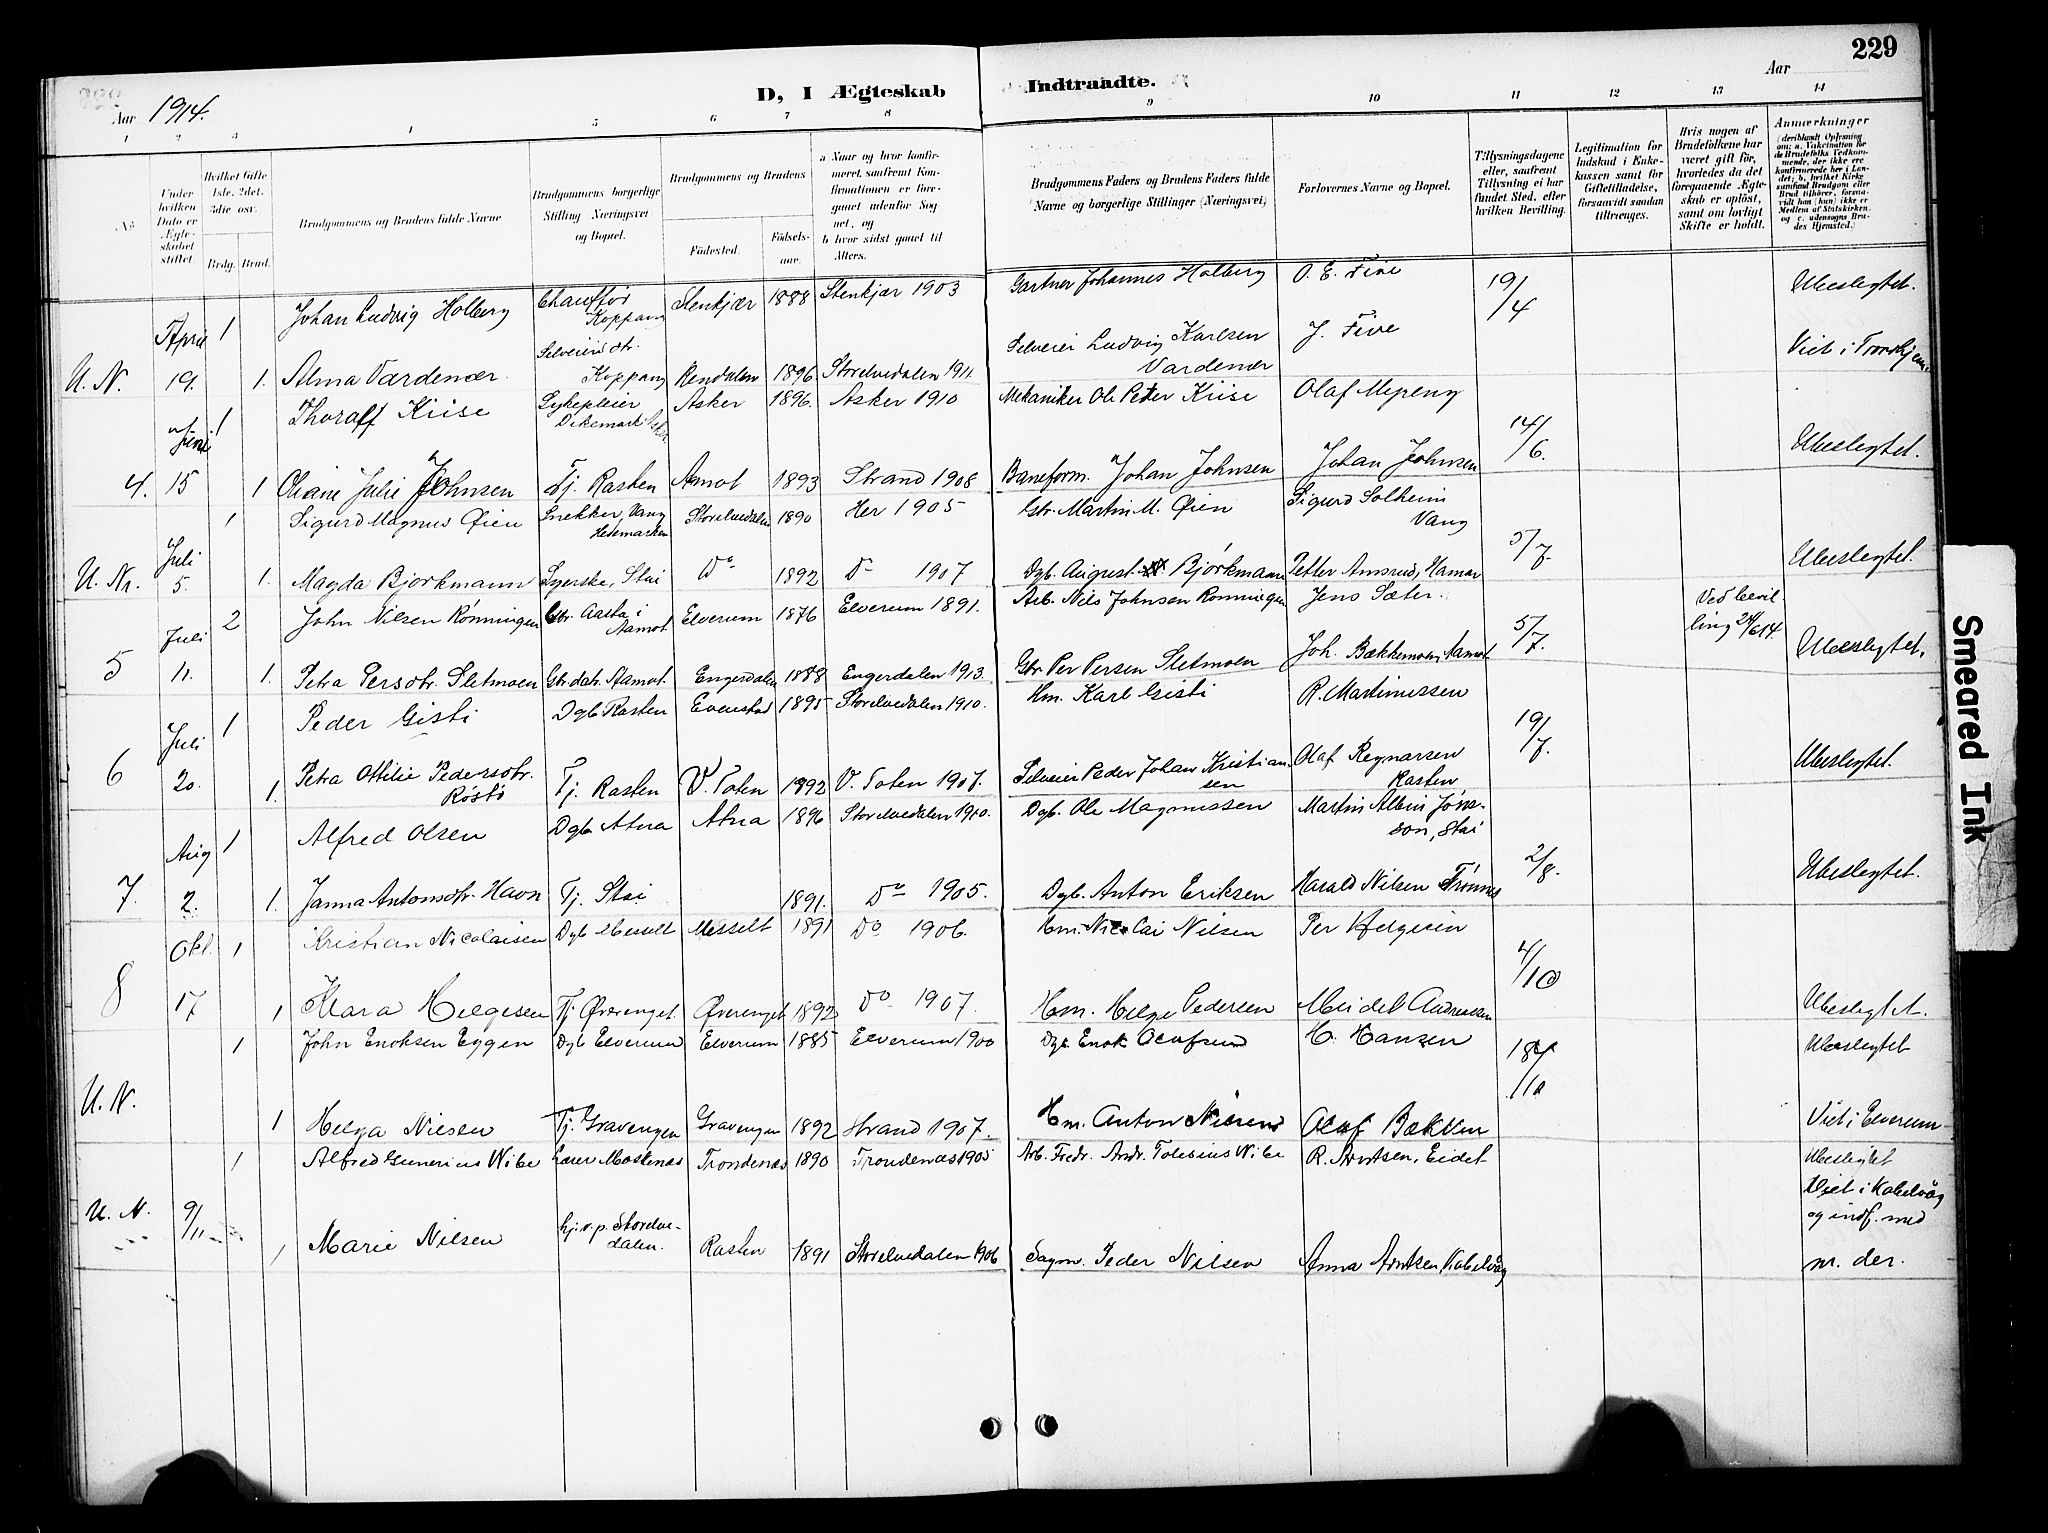 229
Aar 1914.
D, I Ægteskab Indtraadte.
Aar
1 2 3 4 5 6 7 8 9 10 11 12 13 14
No
Under hvilken Dato er Ægteskabet stiftet.
Hvilket Gifte 1ste, 2det, 3die osv.
Brdg. Brud.
Brudgommens og Brudens fulde Navne
Brudgommens borgerlige Stilling Næringsvei og Bopæl.
Brudgommens og Brudens
Födested.
Födselsaar.
a Naar og hvor konfirmeret, saafremt Konfirmationen er foregaaet udenfor Sognet, og
b hvor sidst gaaet til Alters.
Brudgommens Faders og Brudens Faders fulde Navne og borgerlige Stillinger (Næringsvei)
Forlovernes Navne og Bopæl.
Tillysningsdagene eller, saafremt Tillysning ei har fundet Sted, efter hvilken Bevilling.
Legitimation for Indskud i Enkekassen samt for Giftetilladelse, forsaavidt saadan tiltrænges.
Hvis nogen af Brudefolkene har været gift för, hvorledes da det foregaaende Ægteskab er oplöst, samt om lovligt Skifte er holdt.
Anmærkninger
(deriblandt Oplysning om: a. Vakcination for de Brudefolks Vedkommende, der ikke ere konfirmerede her i Landet; b. hvilket Kirkesamfund Brudgom eller Brud tilhører, forsaavidt han (hun) ikke er Medlem af Statskirken, og c. udensogns Brudes Hjemsted.)
Johan Ludvig Holberg Chauffør Koppang Stenkjær 1888 Stenkjær 1903 Gartner Johannes Holberg O. E. Five 19/4 Ubeslegtet.
U. N. April 19. 1 1. Alma Vardenær. Koppang Rendalen 1896 Storelvedalen 1911. Selveier Ludvig Karlsen Vardenær J. Five Viet i Trondhjem.
Thoralf Kiise Sykepleier Dikemark Asker 1896. Asker 1910 Mekaniker Ole Peter Kiise Olaf Myreng
4. Juni 15 1 1 Oliane Julie Johnsen Tj. Rasten Aamot 1893 Strand 1908 Baneform. Johan Johnsen Johan Johnsen 14/6. Ubeslegtet.
1 Sigurd Magnus Øien Snekker, Vang Hedemarken Storelvedalen 1890 Her 1905 Gbr. Martin M. Øien Sigurd Solheim Vang
U. Nr. Juli 5. 1. Magda Bjorkmann Syerske, Stai Do 1892 Do 1907 Dgb. August Bjørkmann Petter Amsrud, Hamar 5/7. Ubeslegtet.
2 John Nilsen Rønningen Gbr. Aasta i Aamot Elverum 1876 Elverum 1891. Arb. Nils Johnsen Rønningen Jens Sæter. Ved bevilling 24/6 14.
5 Juli 11. 1. Petra Persdtr. Sletmoen Gbr.datr. Aamot. Engerdalen 1888 Engerdalen 1903. Gbr Per Persen Sletmoen Joh. Bækkemoen, Aamot 5/7. Ubeslegtet.
1 Peder Gisti Dgb Rasten Evenstad 1895 Storelvedalen 1910. Hm. Karl Gisti R. Martinussen
6 Juli 20. 1. Petra Ottilie Pedersdtr. Røstø Tj. Rasten V. Toten 1892 V. Toten 1907. Selveier Peder Johan Kristiansen Olaf Regnarsen Rasten 19/7. Ubeslegtet.
1 Alfred Olsen Dgb Atna Atna 1896 Storelvedalen 1910. Dgb. Ole Magnussen Martin Albin Jønsson, Stai
7. Aug 2. 1. Janna Antonsdtr. Havn Tj. Stai 1891. Do 1905. Dgb. Anton Eriksen Harald Nilsen Trønnes 2/8. Ubeslegtet.
1 Kristian Nicolaisen Dgb Messelt Messelt 1891 Do 1906. Hm. Nicolai Nilsen Per Helgesen
8 Okt. 17 1 Klara Helgesen Tj Øverenget. Øverenget 1892 Do 1907. Hm. Helge Pedersen Meidel Andreassen 4/10 Ubeslegtet.
1 John Enoksen Eggen Dgb Elverum Elverum 1885 Elverum 1900 Dgb. Enok Olafsen H. Hansen 18/10 Ubeslegtet
U. N. 1 Helga Nielsen Tj. Gravengen Gravengen 1892 Strand 1907. Hm. Anton Nilsen Olaf Bækken Viet i Elverum
1 Alfred Gunerius Wibe Lærer Moskenæs Trondenæs 1890 Trondenæs 1905 Arb. Fredr. Andr. Tolesius Wibe R. Arntsen, Eidet Ubeslegtet
U. N. 9/11 1 Marie Nilsen hj. v. p. Storelvedalen. Rasten 1891 Storelvedalen 1906 Sagm. Peder Nilsen Anna Arntsen, Kabelvåg Viet i Kabelvåg og indf. med nr. der.
Smeared Ink